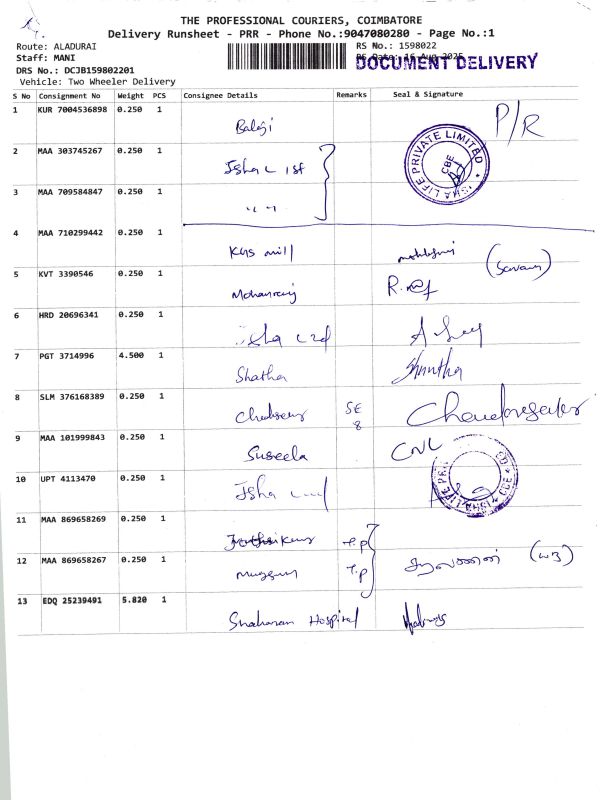 THE PROFESSIONAL COURIERS, COIMBATORE
Delivery Runsheet - PRR - Phone No.:9047080280 - Page No.:1
Route: ALADURAI
RS No.: 1598022
Staff: MANI
DOCUMENT DELIVERY
DRS No.: DCJB159802201
Vehicle: Two Wheeler Delivery
S No Consignment No Weight PCS Consignee Details Remarks Seal & Signature
1 KUR 7004536898 0.250 1 Balaji P/R
2 MAA 303745267 0.250 1 Isha
ISHA LIFE PRIVATE LIMITED CBE
3 MAA 709584847 0.250 1 " "
4 MAA 710299442 0.250 1 KGS mill
5 KVT 3390546 0.250 1 Mohanraj
6 HRD 20696341 0.250 1 Isha
7 PGT 3714996 4.500 1 Shatha Shantha
8 SLM 376168389 0.250 1 SE 8
9 MAA 101999843 0.250 1 Suseela
10 UPT 4113470 0.250 1 Isha
ISHA LIFE CBE
11 MAA 869658269 0.250 1 T.p
12 MAA 869658267 0.250 1 T.p
13 EDQ 25239491 5.820 1 Hospital